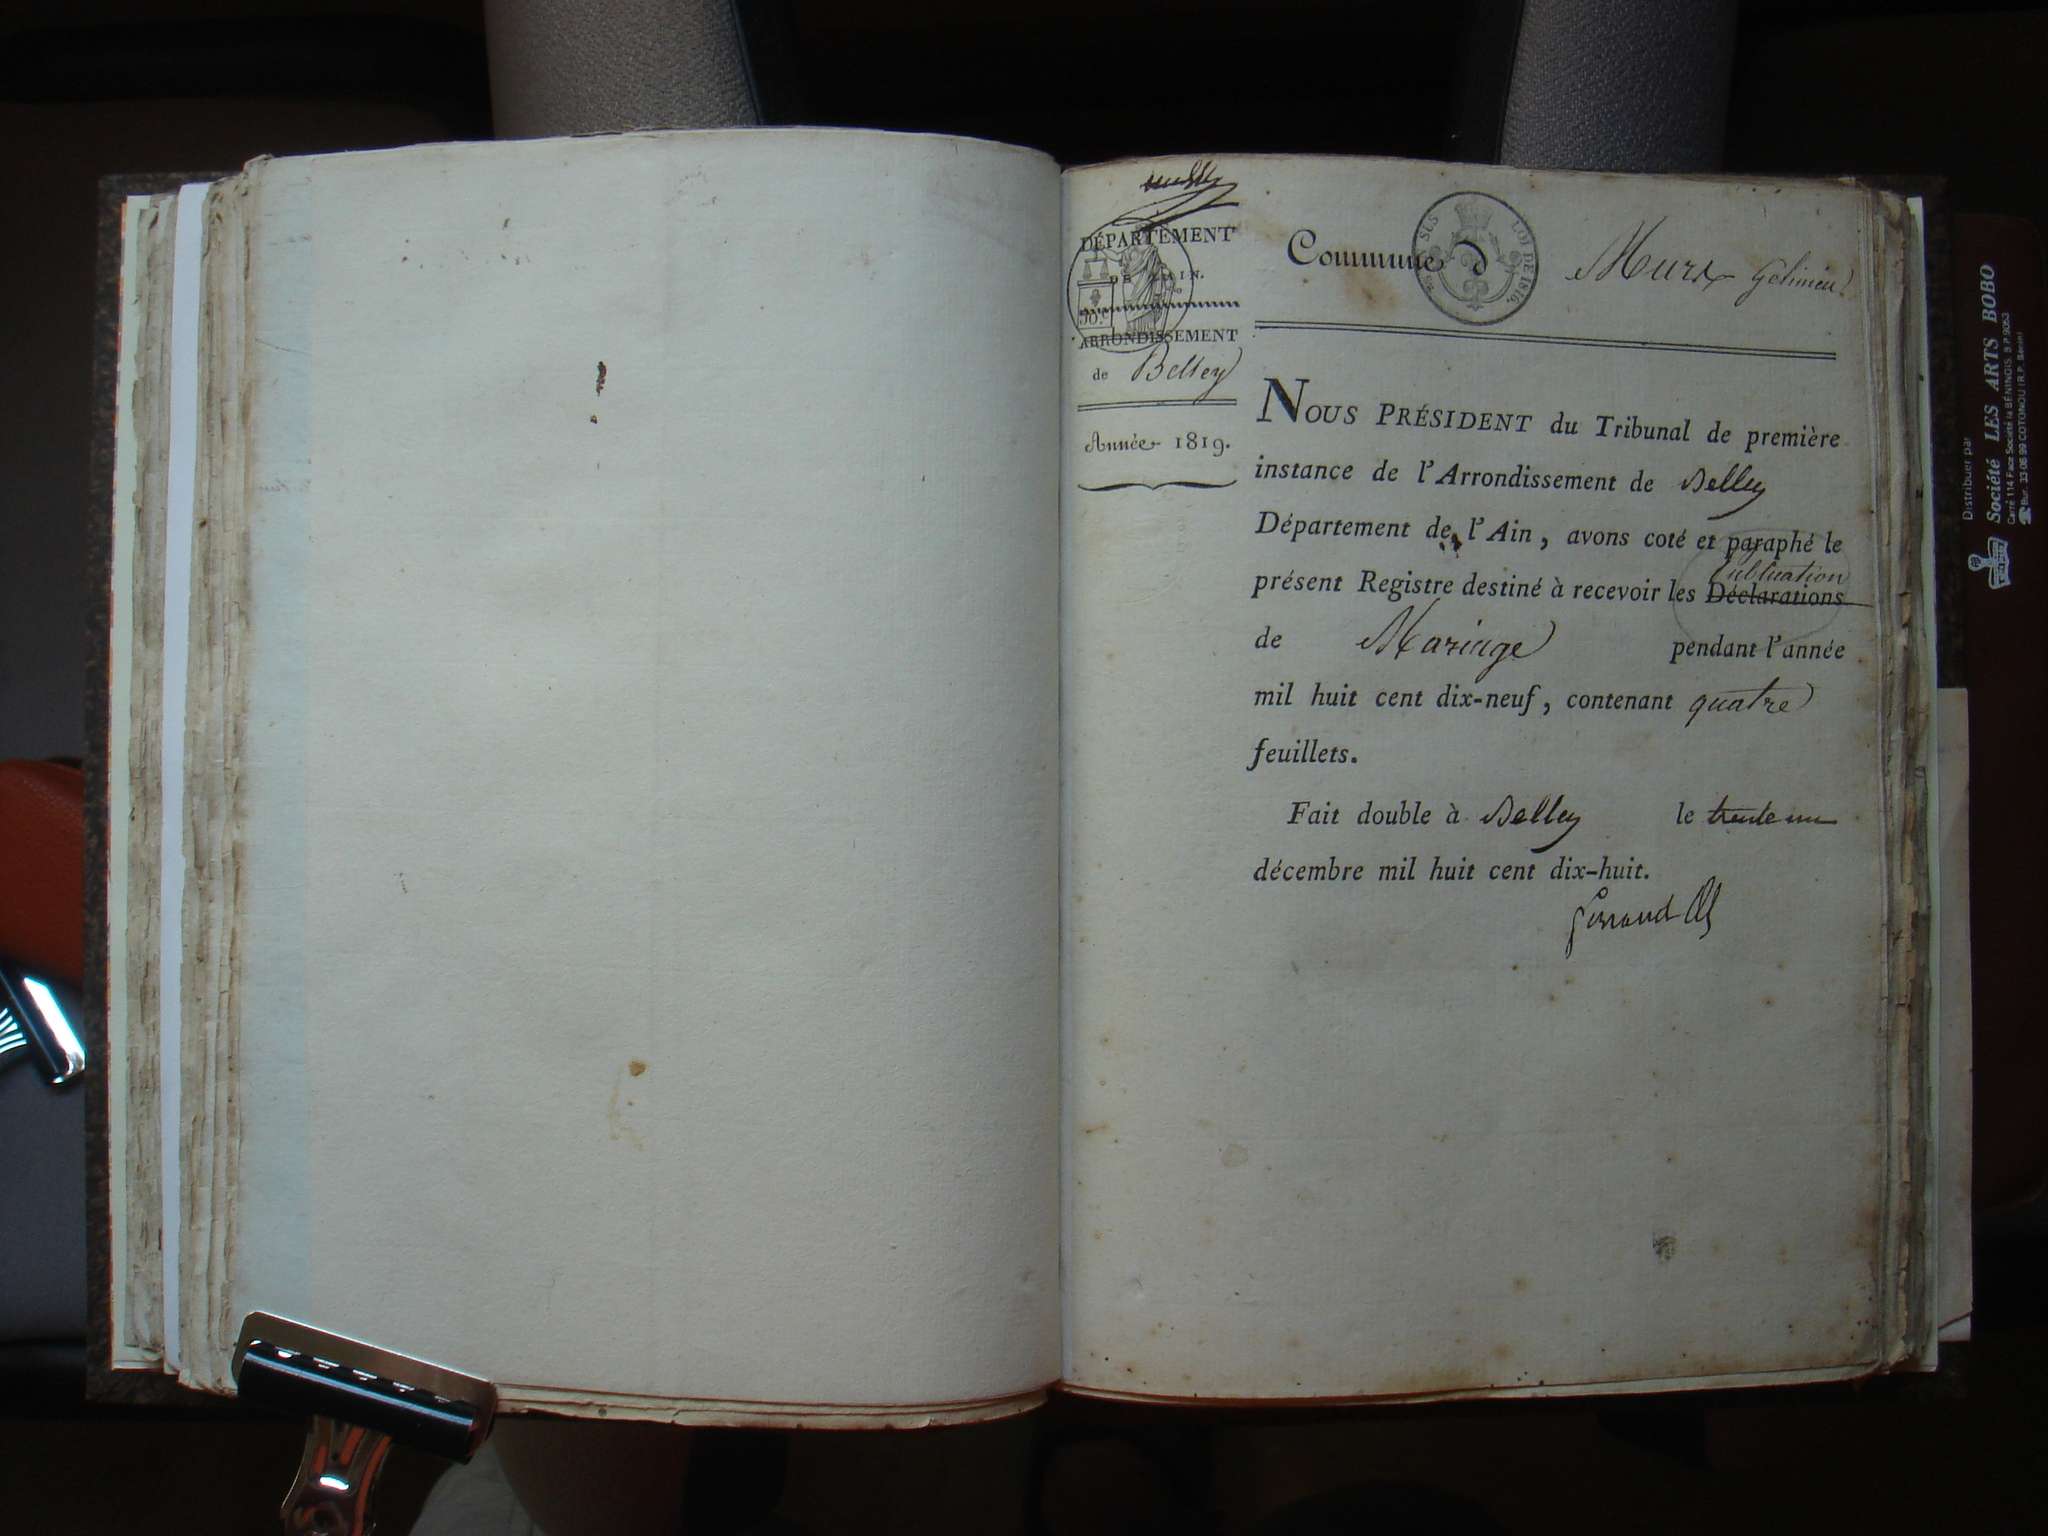 DÉPARTEMENT
DE L'AIN.
ARRONDISSEMENT
de Belley
Année 1819.
SUS LOI DE 1816.
Commune d Murs Gelinieu
NOUS PRÉSIDENT du Tribunal de première
instance de l'Arrondissement de Belley
Département de l'Ain, avons coté et paraphé le
Publication
présent Registre destiné à recevoir les Déclarations
de Mariage pendant l'année
mil huit cent dix-neuf, contenant quatre
feuillets.
Fait double à Belley le trente un
décembre mil huit cent dix-huit.
Distribuer par
Société LES ARTS BOBO
Carré 114 Face Société la BÉNINOIS. B.P. 9053
Bur. 33 06 99 COTONOU (R.P. Benin)